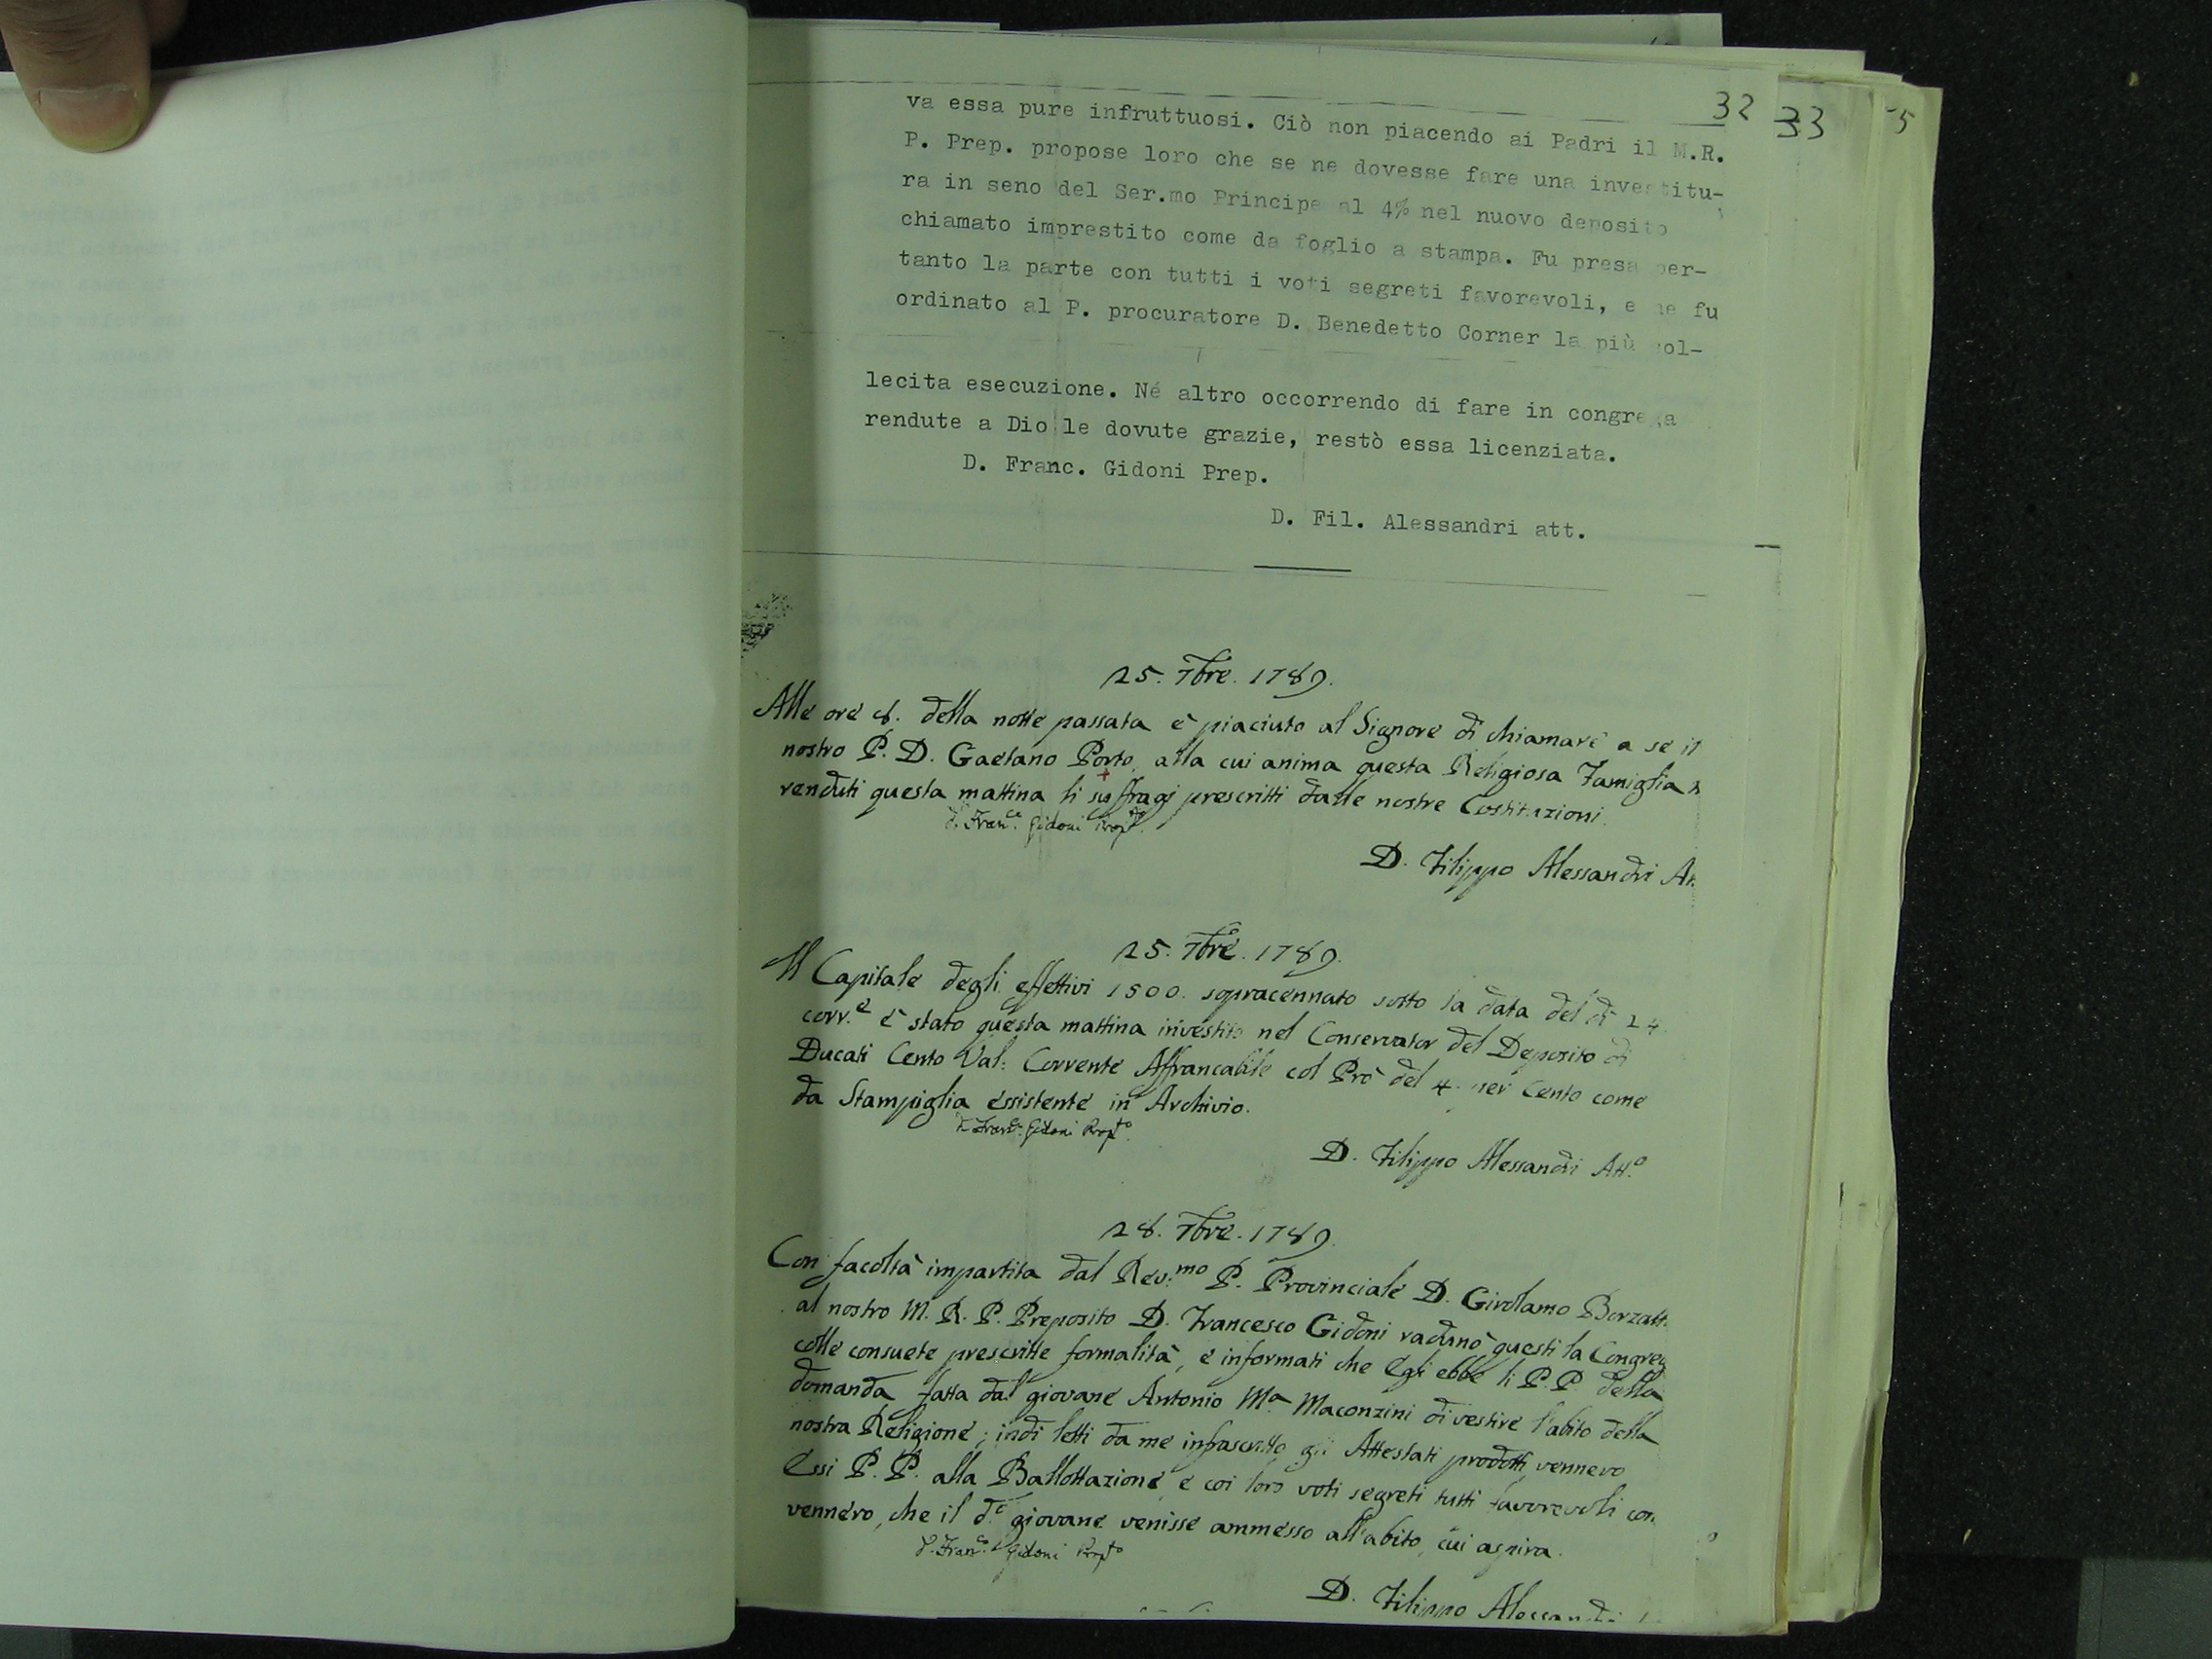 32 33 5
va essa pure infruttuosi. Ciò non piacendo ai Padri il M.R.
P. Prep. propose loro che se ne dovesse fare una investitu-
ra in seno del Ser.mo Principe al 4% nel nuovo deposito
chiamato imprestito come da foglio a stampa. Fu presa per-
tanto la parte con tutti i voti segreti favorevoli, e ne fu
ordinato al P. procuratore D. Benedetto Corner la più sol-
lecita esecuzione. Né altro occorrendo di fare in congrega
rendute a Dio le dovute grazie, restò essa licenziata.
D. Franc. Gidoni Prep.
D. Fil. Alessandri att.
25. 7bre. 1789.
Alle ore 8. della notte passata è piaciuto al Signore di chiamare a se il
nostro P. D. Gaetano Porto, alla cui anima questa Religiosa Famiglia
renduti questa mattina li suffragj prescritti dalle nostre Costituzioni.
D. Franc.co Gidoni Prep.to
D. Filippo Alessandri At.
25. 7bre. 1789.
Il Capitale degli effettivi 1500. sopracennato sotto la data del dì 24
corr.e è stato questa mattina investito nel Conservator del Deposito di
Ducati Cento Val: Corrente Affrancabile col Prò del 4. per Cento come
da Stampiglia essistente in Archivio.
D. Franc.o Gidoni Prep.to
D. Filippo Alessandri Att.o
28. 7bre. 1789.
Con facoltà impartita dal Rev.mo P. Provinciale D. Girolamo Borzatt
al nostro M. R. P. Preposito D. Francesco Gidoni radunò questi la Congreg
colle consuete prescritte formalità, e informati che Egli ebbe li P.P. della
domanda fatta dal giovane Antonio M.a Maconzini di vestire l'abito della
nostra Religione; indi letti da me infrascritto gli Attestati prodotti, vennero
Essi P. P. alla Ballottazione, e coi loro voti segreti tutti favorevoli con
vennero, che il d.o giovane venisse ammesso all'abito, cui aspira.
D. Franc.o Gidoni Prep.to
D. Filippo Alessandri